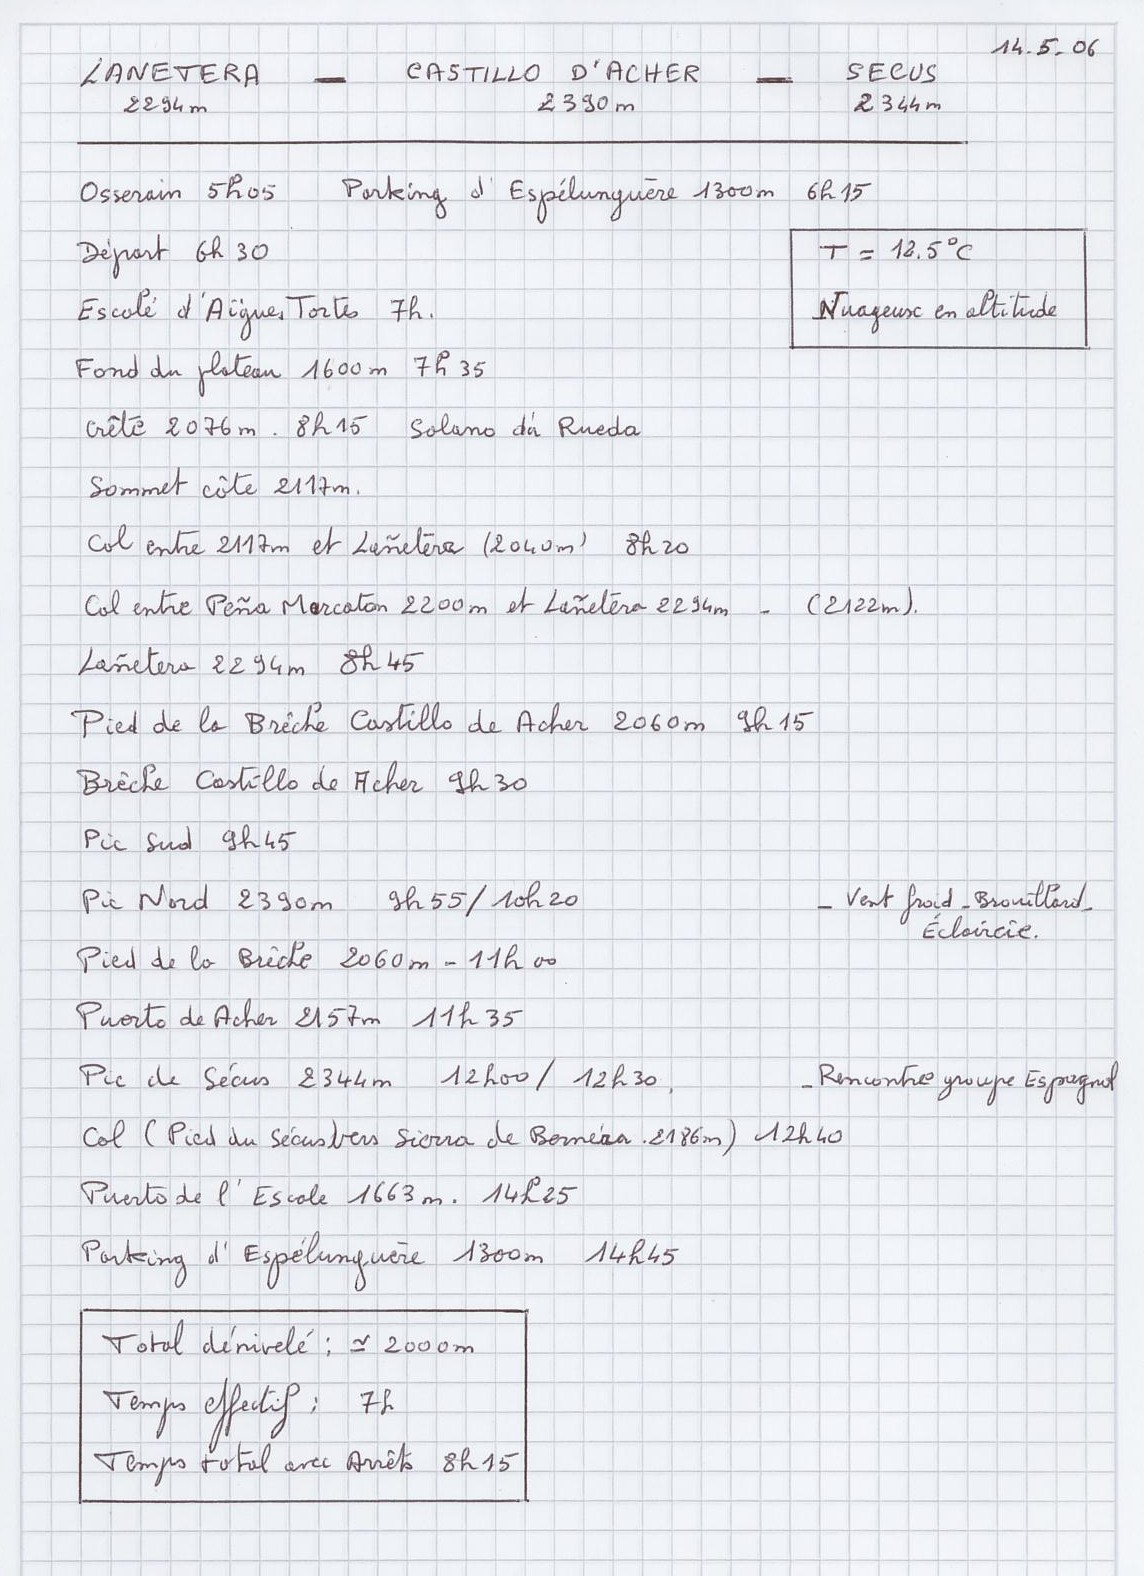 14.5.06
LANETERA — CASTILLO D'ACHER — SECUS
2294m 2390m 2344m
Osserain 5h05 Parking d'Espélunguère 1300m 6h15
Départ 6h30
T = 12.5°C
Escalé d'Aigues Tortes 7h.
Nuageux en altitude
Fond du plateau 1600m 7h35
Crête 2076m. 8h15 Solano dà Rueda
Sommet côte 2117m.
Col entre 2117m et Lañetéra (2040m) 8h20
Col entre Peña Marcaton 2200m et Lañetéra 2294m - (2122m).
Lañetera 2294m 8h45
Pied de la Brêche Castillo de Acher 2060m 9h15
Brêche Castillo de Acher 9h30
Pic Sud 9h45
Pic Nord 2390m 9h55/10h20 - Vent froid - Brouillard -
Éclaircie.
Pied de la Brêche 2060m - 11h00
Puerto de Acher 2157m 11h35
Pic de Sécus 2344m 12h00/ 12h30, - Rencontre groupe Espagnol
Col (Pied du Sécus vers Sierra de Bernéra. 2186m) 12h40
Puerto de l'Escale 1663m. 14h25
Parking d'Espélunguère 1300m 14h45
Total dénivelé : ≃ 2000m
Temps effectif : 7h
Temps total avec Arrêts 8h15